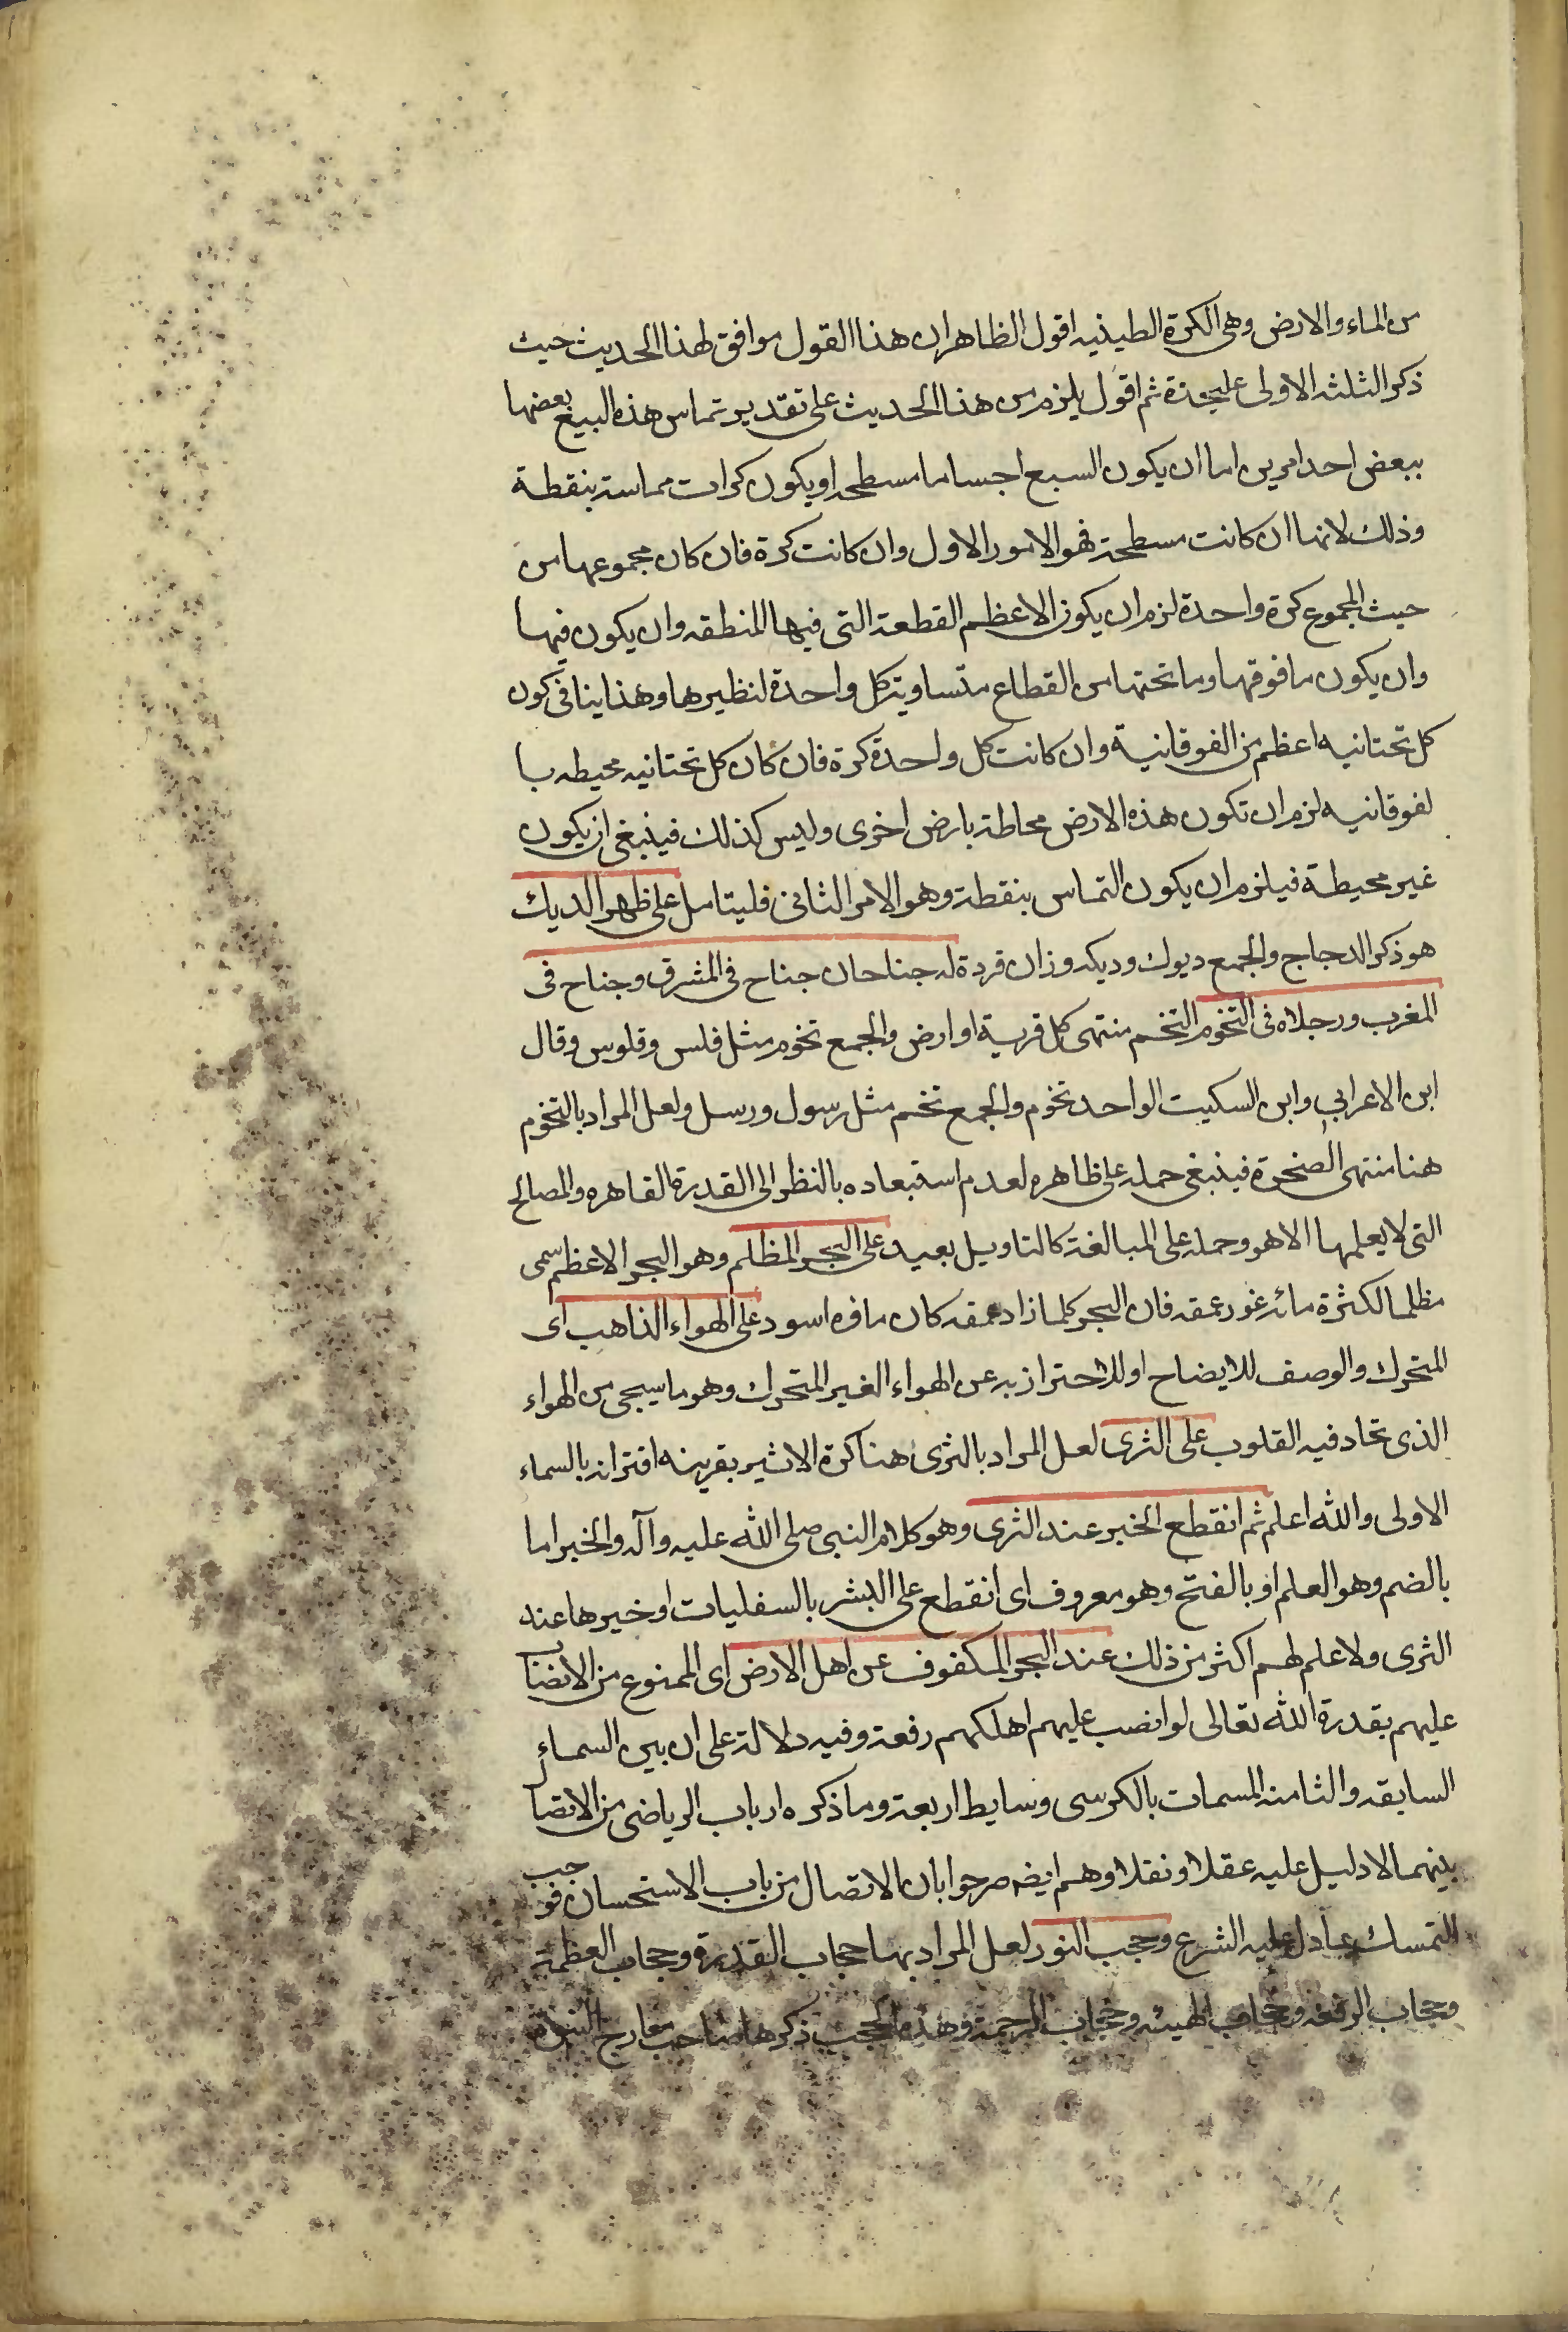 من الماء والارض وهى الكرة الطينيه اقول الظاهر ان هذا القول موافق لهذا الحديث حيث
ذكر الثلثه الاولى عليحدة ثم اقول يلزم من هذا الحديث على تقدير تماس هذه السبع بعضها
ببعض احد امرين اما ان يكون السبع اجساما مسطحه او يكون كرات مماسته بنقطة
وذلك لانها ان كانت مسطحة فهو الامور الاول وان كانت كرة فان كان مجموعها من
حيث المجموع كرة واحدة لزم ان يكون الاعظم القطعة التى فيها المنطقه وان يكون فيها
وان يكون ما فوقها وما تحتها من القطاع متساوية كل واحدة لنظيرها وهذا ينافى كون
كل تحتانيه اعظم من الفوقانية وان كانت كل واحدة كرة فان كان كل تحتانيه محيطه با
لفوقانيه لزم ان تكون هذه الارض محاطة بارض اخرى وليس كذلك فينبغى ان يكون
غير محيطة فيلزم ان يكون التماس بنقطة وهو الامر الثانى فليتامل على ظهر الديك
هو ذكر الدجاج والجمع ديوك وديكه وزان قردة له جناحان جناح فى المشرق وجناح فى
المغرب ورجلاه فى التخوم التخم منتهى كل قرية او ارض والجمع تخوم مثل فلس وفلوس وقال
ابن الاعرابي وابن السكيت الواحد تخوم والجمع تخم مثل رسول ورسل ولعل المراد بالتخوم
هنا منتهى الصخرة فينبغى حمله على ظاهره لعدم استبعاده بالنظر الى القدرة القاهره والمصالح
التى لا يعلمها الا هو وحمله على المبالغة كالتاويل بعيد على البحر المظلم وهو البحر الاعظم سمى
مظلما لكثرة مائه غور عمقه فان البحر كلما زاد عمقه كان مافره اسود على الهواء الذاهب اى
المتحرك والوصف للايضاح او للاحتراز به عن الهواء الغير المتحرك وهو ما سيجى من الهواء
الذى تحاد فيه القلوب على الثرى لعل المراد بالثرى هنا كرة الاثير بقرينه اقترانه بالسماء
الاولى والله اعلم ثم انقطع الخبر عند الثرى وهو كلام النبى صلى الله عليه وآله والخبر اما
بالضم وهو العلم او بالفتح وهو معروف اى انقطع على البشر بالسفليات اوخيرها عند
الثرى ولا علم لهم اكثر من ذلك عند البحر المكفوف عن اهل الارض اى الممنوع من الانصباب
عليهم بقدرة الله تعالى لو انصب عليهم اهلكهم رفعة وفيه دلالة على ان بين السماء
السابقه والثامنه المسمات بالكرسى وسايط اربعة وما ذكره ارباب الرياضى من الاتصا
بينهما لا دليل عليه عقلا او نقلا وهم ايضه صرحوا بان الاتصال من باب الاستحسان فوجب
التمسك بمادل عليه الشرع وحجب النور لعل المراد بها حجاب القدرة وحجاب العظمة
وحجاب الرفعه وحجاب الهيبه وحجاب الرحمة وهذه الحجب ذكرها صاحب معارج النبوة